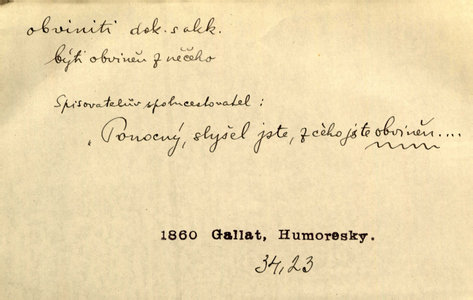 obviniti dok. s akk.
býti obviněn z něčeho
Spisovatelův spolucestovatel :
„Ponocný, slyšel jste, z čeho jste obviněn....
1860 Gallat, Humoresky.
34,23